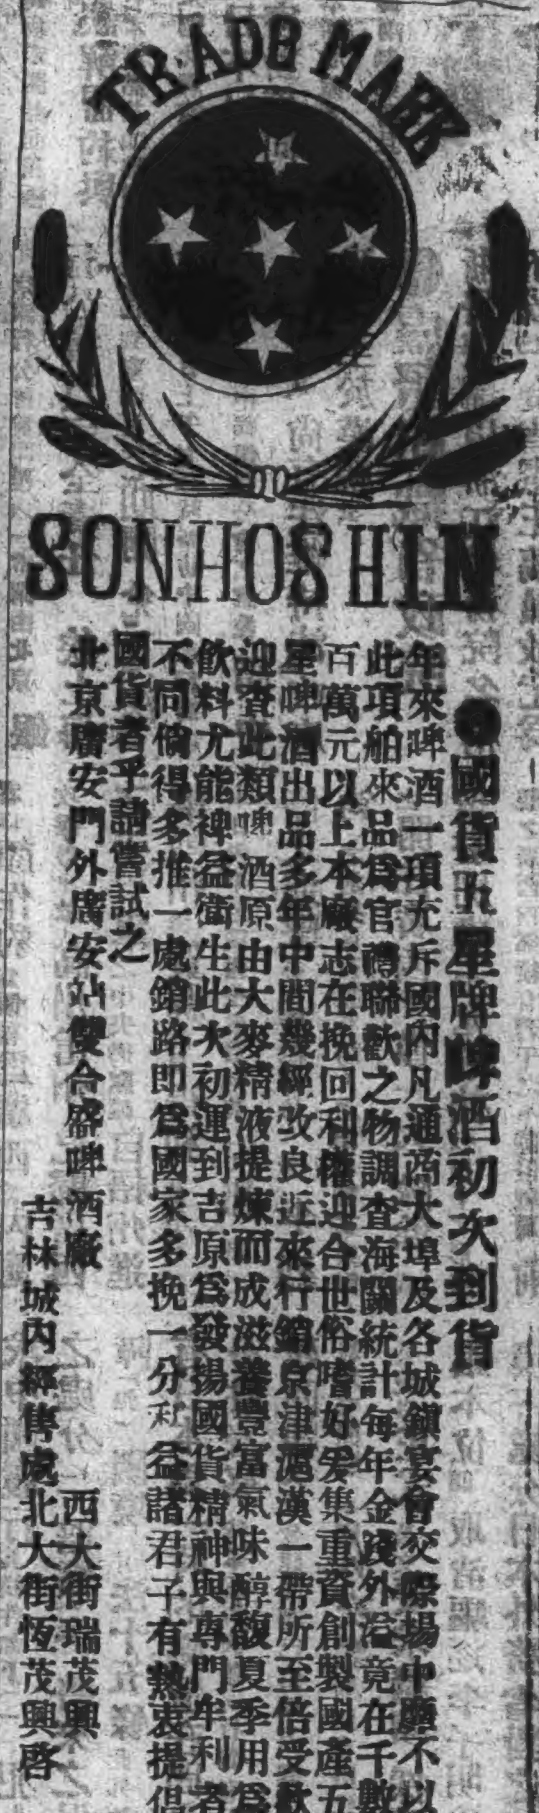 TRADE MARK
SONHOSHIN
●國貨五星牌啤酒初次到貨
年來啤酒一項充斥國內凡通商大埠及各城鎮宴會交際場中靡不以
此項舶來品爲官禮聯歡之物調查海關統計每年金錢外溢竟在千數
百萬元以上本廠志在挽回利權迎合世俗嗜好爰集重資創製國產五
星啤酒出品多年中間幾經改良近來行銷京津滬漢一帶所至倍受歡
迎查此類啤酒原由大麥精液提煉而成滋養豐富氣味醇馥夏季用爲
飲料尤能裨益衛生此次初運到吉原爲發揚國貨精神與專門牟利者
不同倘得多推一處銷路即爲國家多挽一分利益諸君子有熱衷提倡
國貨者乎請嘗試之
北京廣安門外廣安站雙合盛啤酒廠
吉林城內經售處
西大街瑞茂興
北大街恆茂興啓